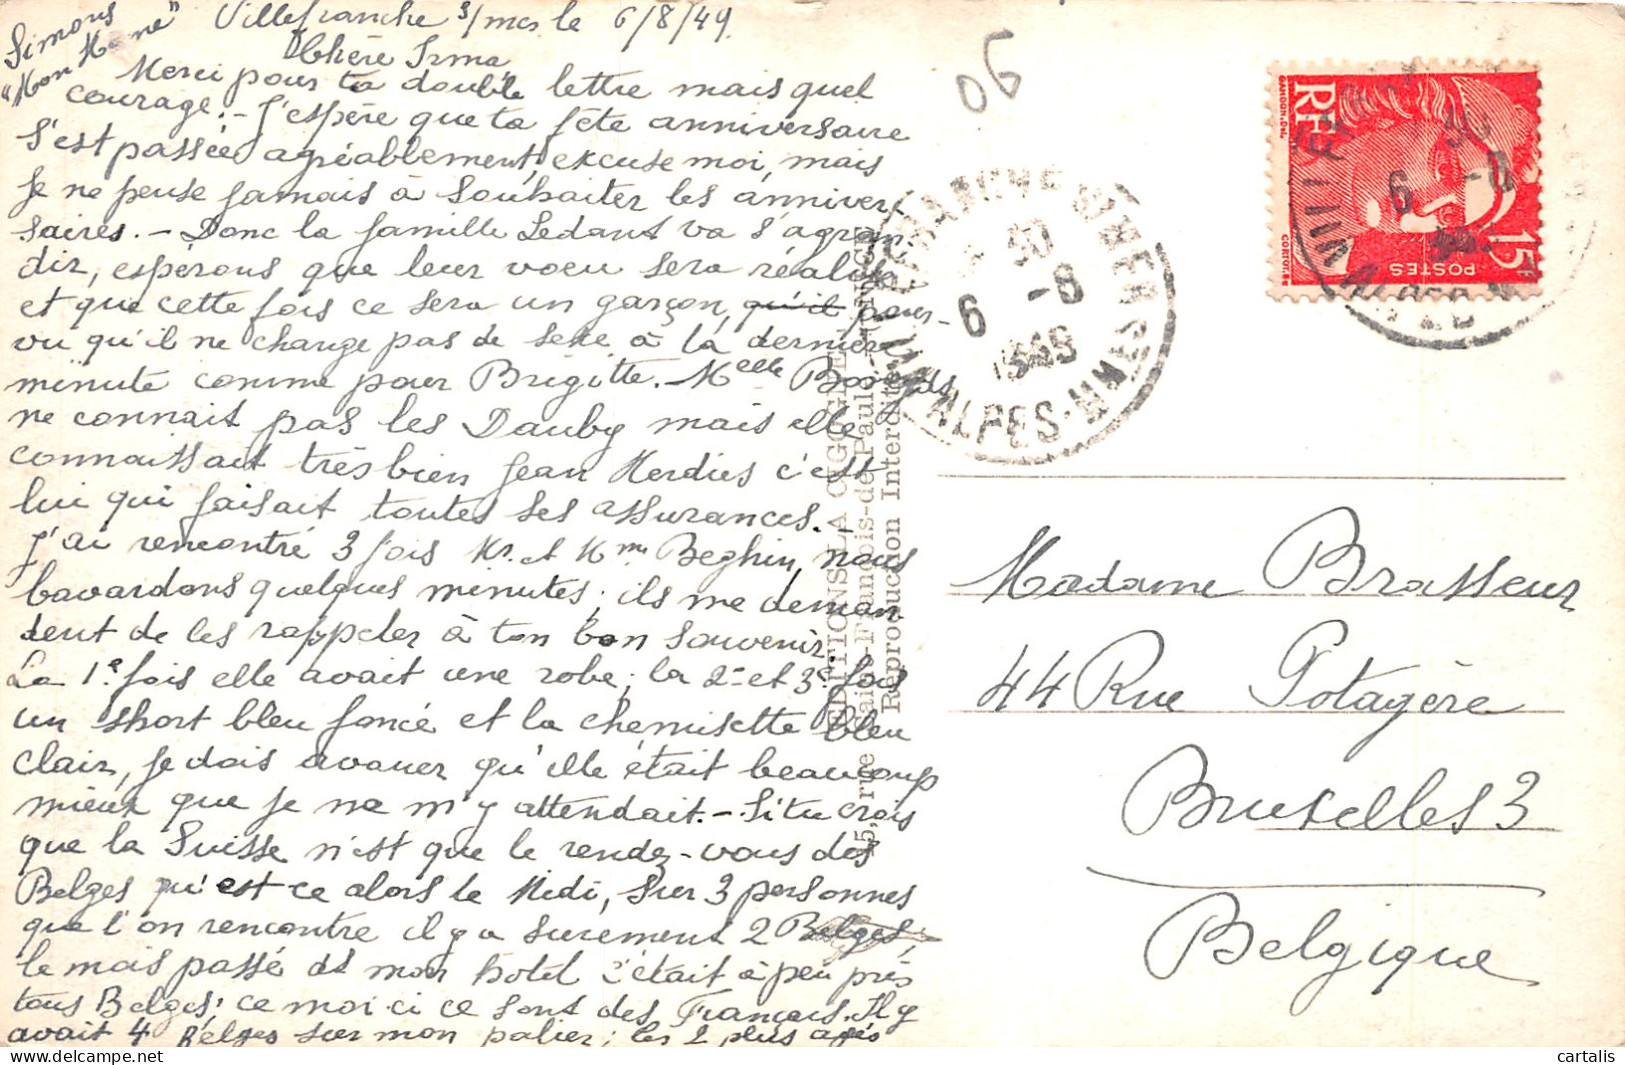 Simons
"Mon Home"
Villefranche s/mer le 6/8/49
Chère Irma
Merci pour ta double lettre mais quel
courage. - J'espère que ta fête anniversaire
s'est passée agréablement, excuse moi, mais
je ne pense jamais à souhaiter les anniver-
saires. - Donc la famille Ledant va s'agran-
dir, espérons que leur voeu sera réalisé
et que cette fois ce sera un garçon, qu'il pour-
vu qu'il ne change pas de sexe à la dernière
minute comme pour Brigitte. - Melle
ne connait pas les Dauby mais elle
connaissait très bien Jean Herdies c'est
lui qui faisait toutes ses assurances.
J'ai rencontré 3 fois Mr. et Mme Beghin, nous
bavardons quelques minutes; ils me deman
dent de les rappeler à ton bon souvenir.
La 1e fois elle avait une robe; la 2e et 3e fois
un short bleu foncé et la chemisette bleu
clair, je dois avouer qu'elle était beaucoup
mieux que je ne m'y attendait. - Si tu crois
que la Suisse n'est que le rendez-vous des
Belges qu'est ce alors le Midi, sur 3 personnes
que l'on rencontre il y a surement 2 Belges;
le mois passé ds mon hotel c'était à peu près
tous Belges; ce moi-ci ce sont des Français. Il y
avait 4 Belges sur mon palier; les 2 plus agés
06
RF
15F
POSTES
VILLEFRANCHE-S-MER
6 -8
ALPES-MMES
EDITIONS LA CIGOGNE
5, rue Saint-François-de-Paule
Reproduction Interdite
Madame Brasseur
44 Rue Potagère
Bruxelles 3
Belgique
cartalis